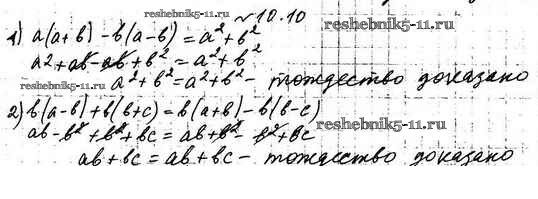 reshebnik5-11.ru
№10.10
1) a(a+b)-b(a-b)=a²+b²
a2+ab-ab+b²=a²+b²
a²+b²=a²+b²- тождество доказано
reshebnik5-11.ru
2) b(a-b)+b(b+c)=b(a+b)-b(b-c)
reshebnik5-11.ru
ab-b²+b²+bc=ab+b²-b²+bc
ab+bc=ab+bc- тождество доказано